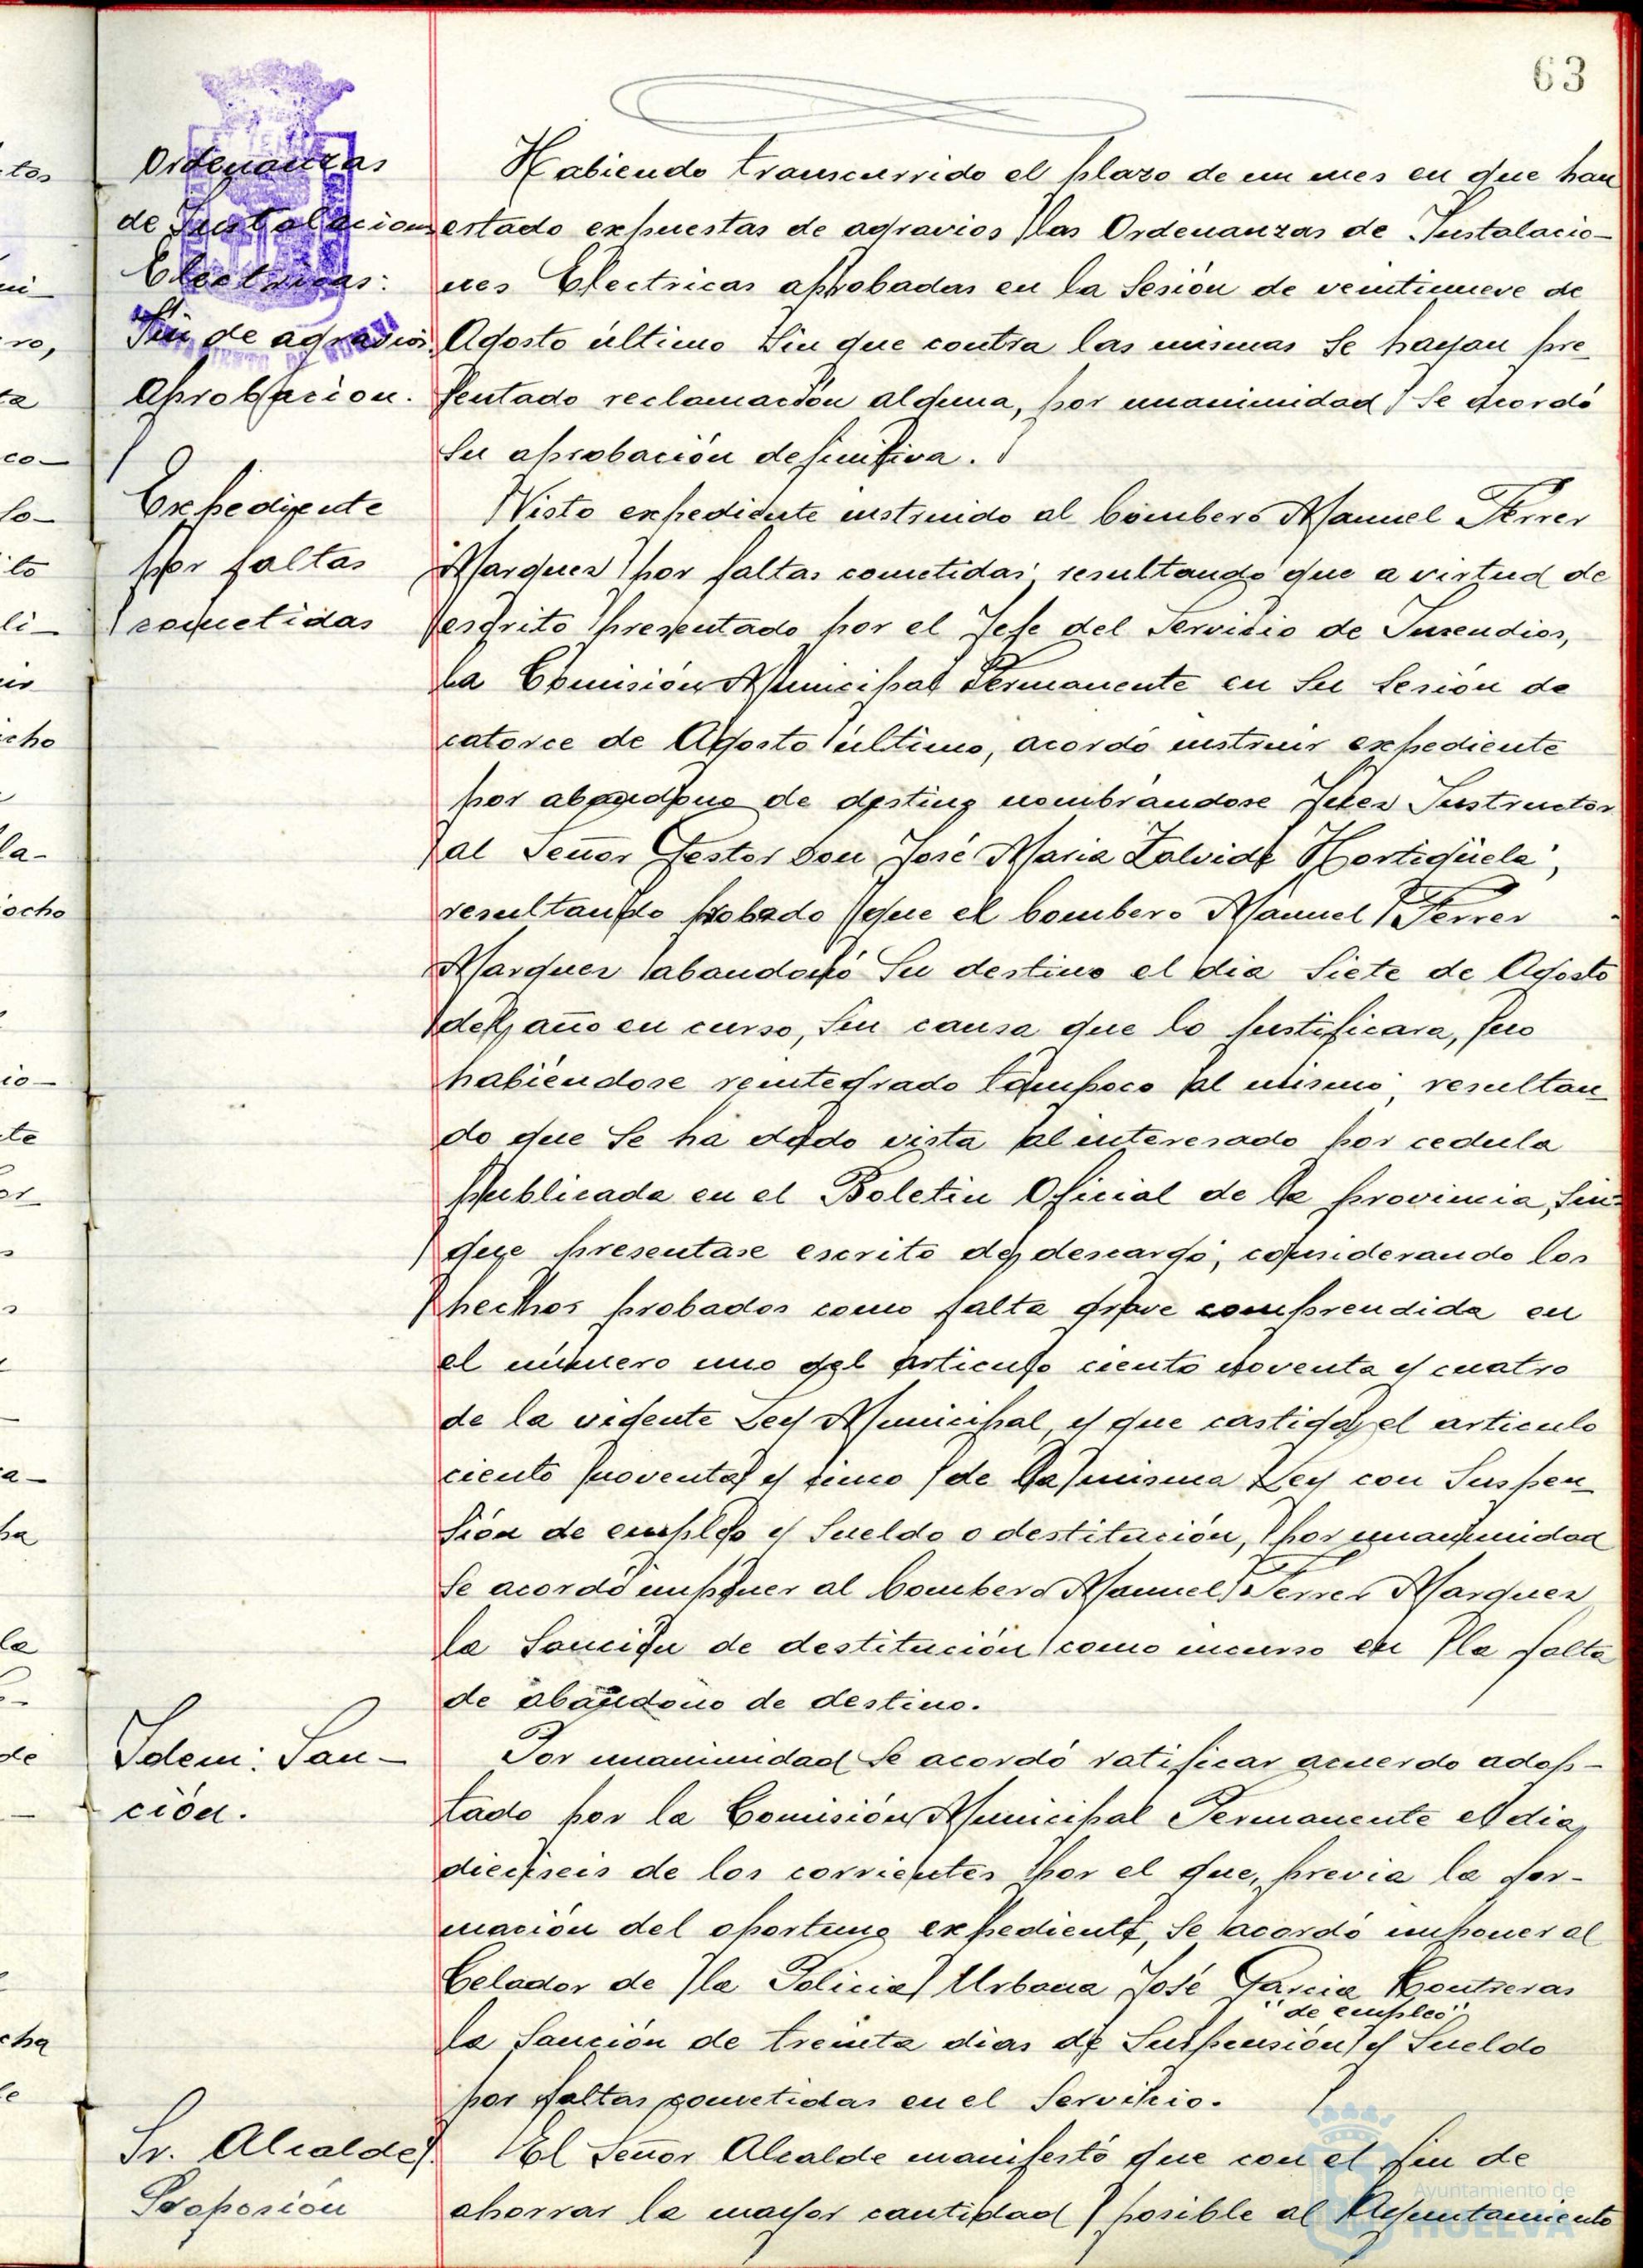 63
Ordenanzas
de Instalaciones
Electricas:
Fin de agravios.
Aprobacion.
Habiendo transcurrido el plazo de un mes en que han
estado expuestas de agravios las Ordenanzas de Instalacio-
nes Electricas aprobadas en la Sesión de veintinueve de
Agosto último sin que contra las mismas se hayan pre-
sentado reclamación alguna, por unanimidad se acordó
su aprobación definitiva.
Expediente
por faltas
cometidas
Visto expediente instruido al bombero Manuel Ferrer
Marquez por faltas cometidas; resultando que a virtud de
escrito presentado por el Jefe del Servicio de Incendios,
la Comisión Municipal Permanente en su sesión de
catorce de Agosto último, acordó instruir expediente
por abandono de destino nombrandose Juez Instructor
al Señor Gestor Don José Maria Zalvide Hortigüela;
resultando probado que el bombero Manuel Ferrer
Marquez abandonó su destino el dia siete de Agosto
del año en curso, sin causa que lo justificara, no
habiéndose reintegrado tampoco al mismo; resultan-
do que se ha dado vista al interesado por cedula
publicada en el Boletin Oficial de la provincia, sin
que presentase escrito de descargo; considerando los
hechos probados como falta grave comprendida en
el número uno del articulo ciento noventa y cuatro
de la vigente Ley Municipal, y que castiga el articulo
ciento noventa y cinco de la misma Ley con suspen-
sión de empleo y sueldo o destitución, por unanimidad
se acordó imponer al bombero Manuel Ferrer Marquez
la sanción de destitución como incurso en la falta
de abandono de destino.
Idem: San-
ción.
Por unanimidad se acordó ratificar acuerdo adop-
tado por la Comisión Municipal Permanente el dia
dieciseis de los corrientes por el que, previa la for-
mación del oportuno expediente, se acordó imponer al
Celador de la Policia Urbana José Garcia Contreras
"de empleo"
la sanción de treinta dias de suspensión y sueldo
por faltas cometidas en el servicio.
Sr. Alcalde.
Proposión
El Señor Alcalde manifestó que con el fin de
ahorrar la mayor cantidad posible al Ayuntamiento
Ayuntamiento de
HUELVA